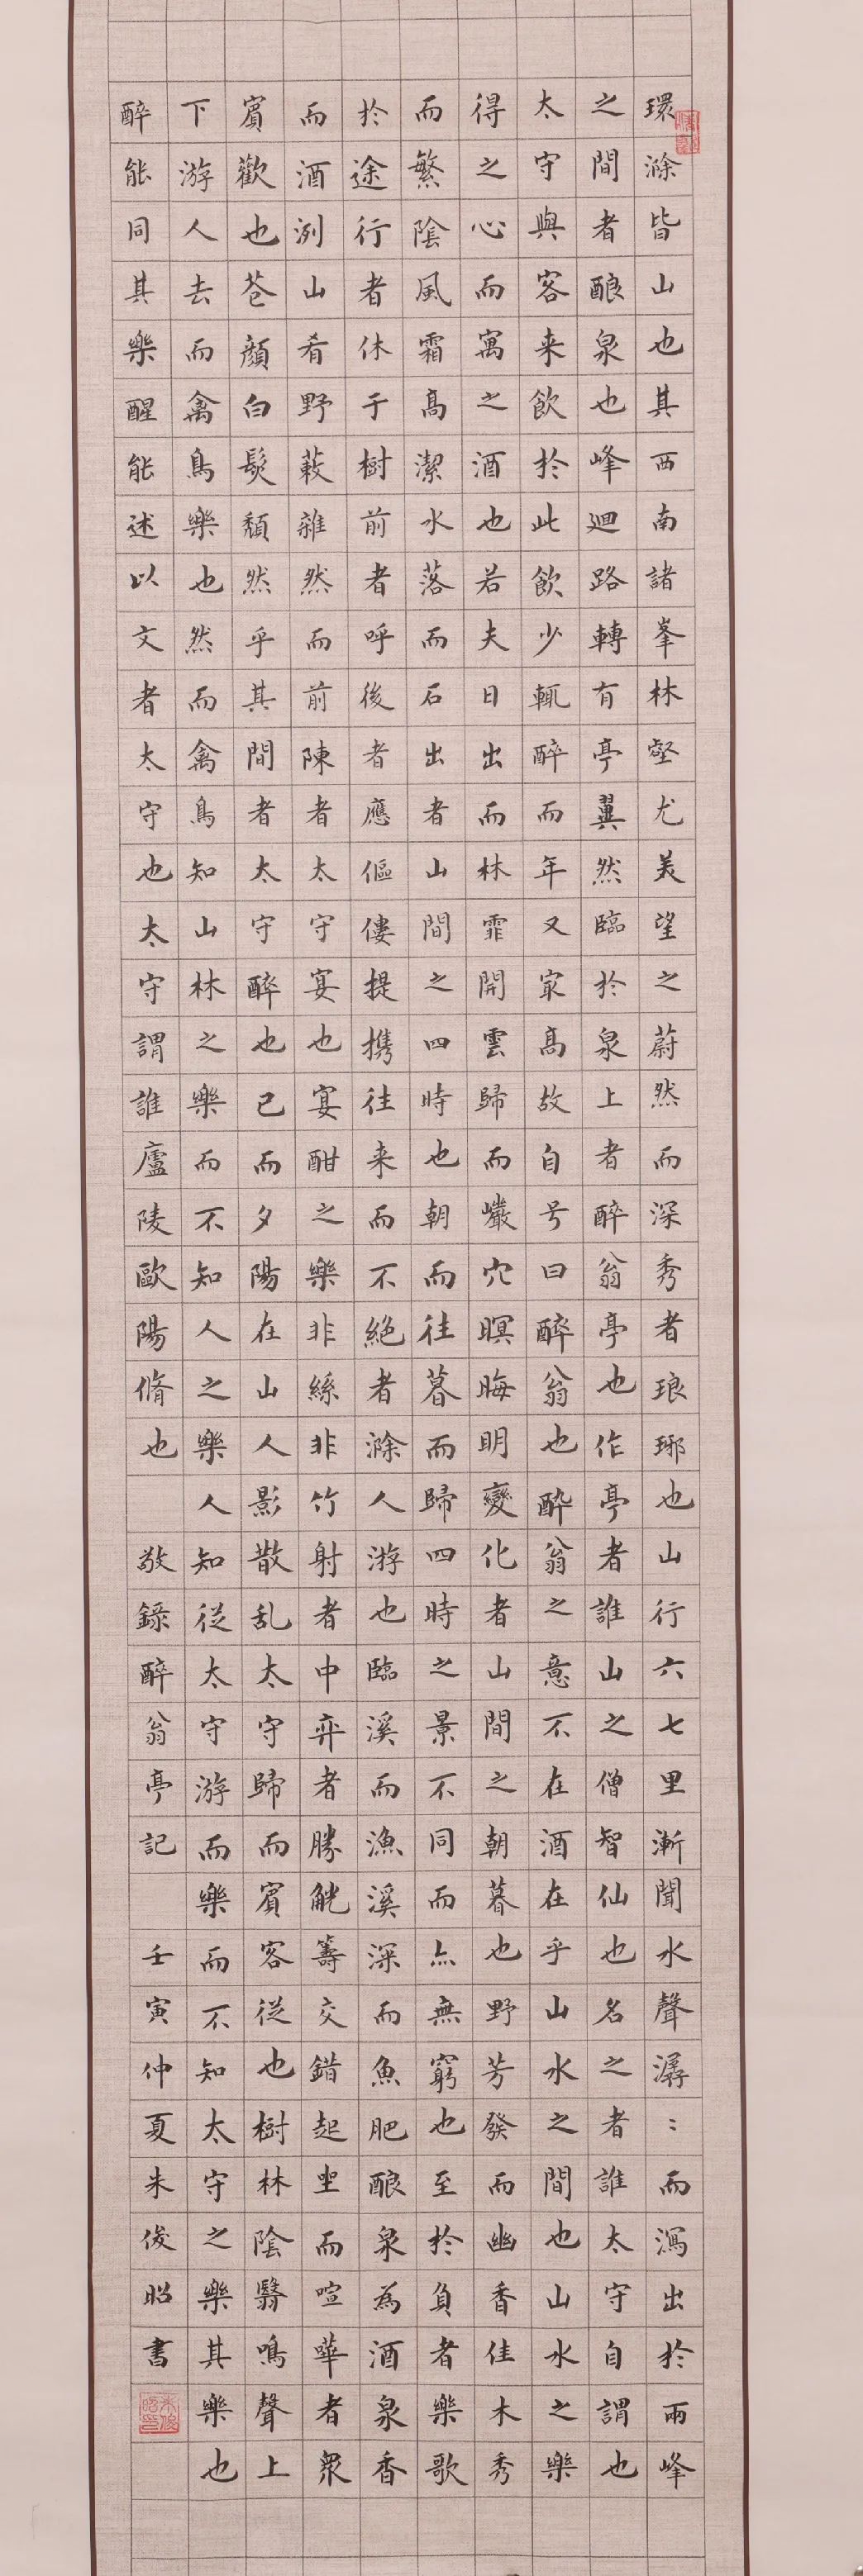 環滁皆山也其西南諸峯林壑尤美望之蔚然而深秀者琅琊也山行六七里漸聞水聲潺：而瀉出於兩峰
之間者釀泉也峰迴路轉有亭翼然臨於泉上者醉翁亭也作亭者誰山之僧智仙也名之者誰太守自謂也
太守與客来飲於此飲少輒醉而年又冣高故自号曰醉翁也醉翁之意不在酒在乎山水之間也山水之樂
得之心而寓之酒也若夫日出而林霏開雲歸而巖穴暝晦明變化者山間之朝暮也野芳發而幽香佳木秀
而繁陰風霜高潔水落而石出者山間之四時也朝而往暮而歸四時之景不同而亦無窮也至於負者樂歌
於途行者休于樹前者呼後者應傴僂提携往来而不絕者滁人游也臨溪而漁溪深而魚肥釀泉為酒泉香
而酒洌山肴野蔌雜然而前陳者太守宴也宴酣之樂非絲非竹射者中弈者勝觥籌交錯起坐而喧嘩者衆
賓歡也苍顏白髮頹然乎其間者太守醉也已而夕陽在山人影散乱太守歸而賓客從也樹林陰翳鳴聲上
下游人去而禽鳥樂也然而禽鳥知山林之樂而不知人之樂人知從太守游而樂而不知太守之樂其樂也
醉能同其樂醒能述以文者太守也太守謂誰廬陵歐陽脩也 敬錄醉翁亭記 壬寅仲夏朱俊昭書